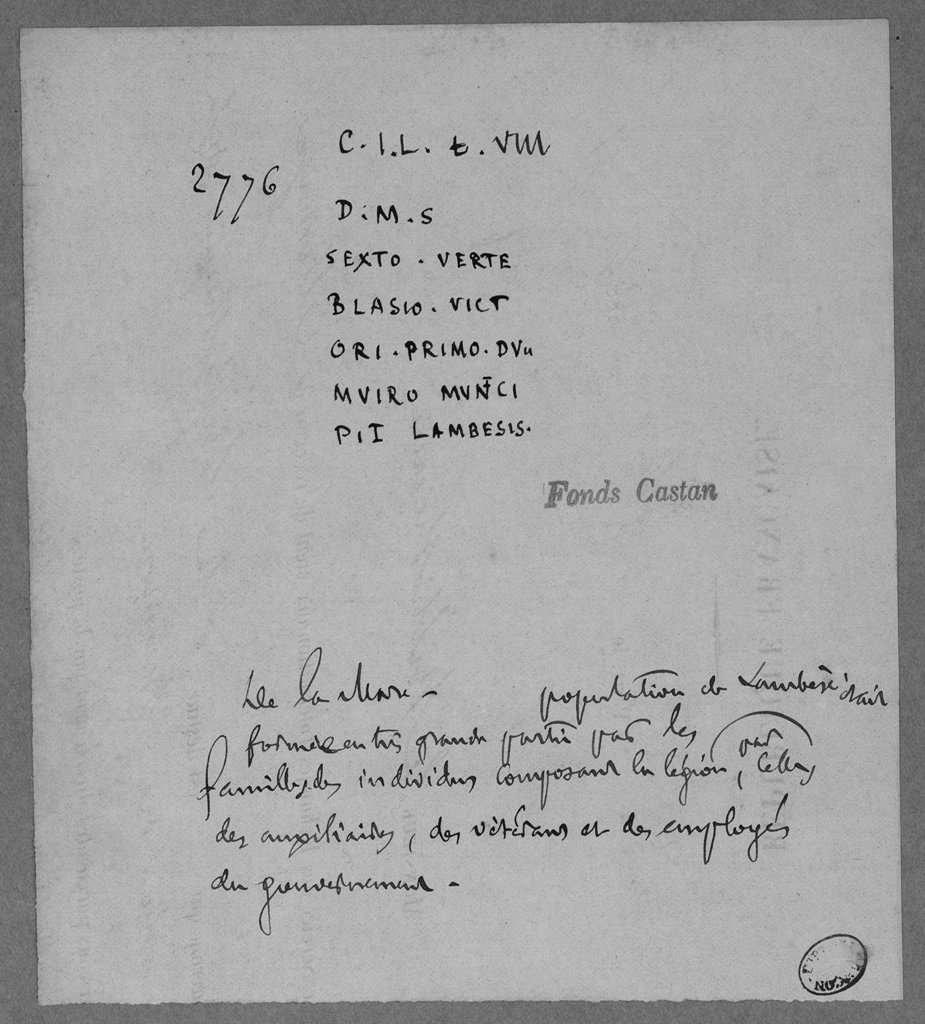 C. I. L. t. VIII
2776
D. M. S
SEXTO . VERTE
BLASIO . VICT
ORI . PRIMO . DVu
MVIRO MVNCI
PIT LAMBESIS.
Fonds Castan
De la Mare – population de Lambèse était
formée en très grande partie par les
familles des individus composant la légion, par celles
des auxiliaires, des vétérans et des employés
du gouvernement –